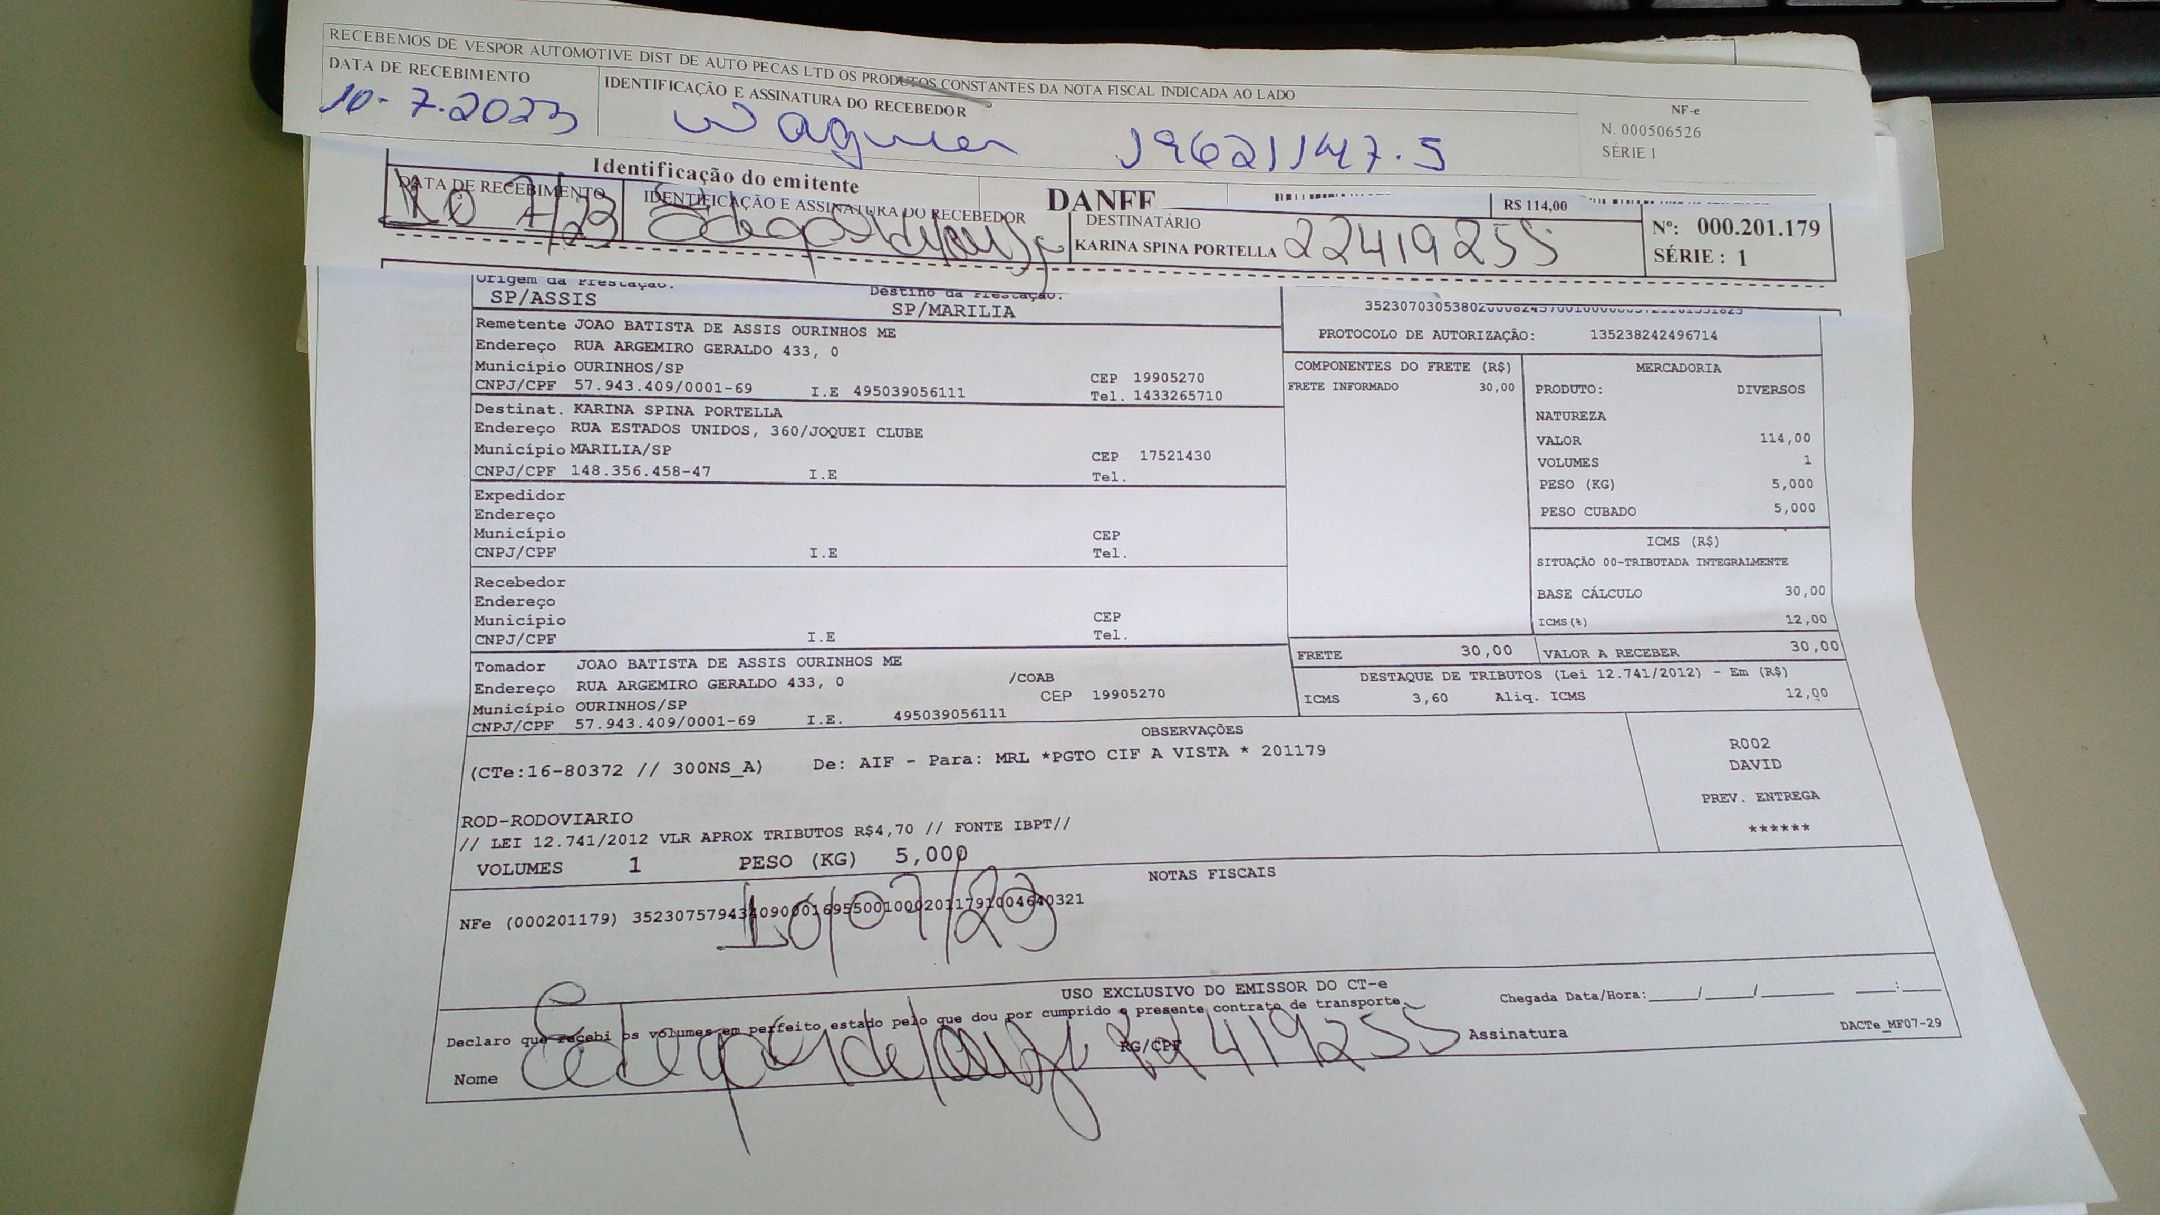 RECEBEMOS DE VESPOR AUTOMOTIVE DIST DE AUTO PECAS LTD OS PRODUTOS CONSTANTES DA NOTA FISCAL INDICADA AO LADO
DATA DE RECEBIMENTO
IDENTIFICAÇÃO E ASSINATURA DO RECEBEDOR
NF-e
N. 000506526
SÉRIE 1
10-7.2023 Wagner 19621147.5
Identificação do emitente
DANFE
R$ 114,00
DATA DE RECEBIMENTO
IDENTIFICAÇÃO E ASSINATURA DO RECEBEDOR
DESTINATÁRIO
KARINA SPINA PORTELLA 22419255
Nº: 000.201.179
SÉRIE : 1
10 7/23
Origem da Prestação:
SP/ASSIS
Destino da Prestação:
SP/MARILIA
PROTOCOLO DE AUTORIZAÇÃO: 135238242496714
Remetente JOAO BATISTA DE ASSIS OURINHOS ME
Endereço RUA ARGEMIRO GERALDO 433, 0
Município OURINHOS/SP
CEP 19905270
CNPJ/CPF 57.943.409/0001-69 I.E 495039056111 Tel. 1433265710
Destinat. KARINA SPINA PORTELLA
Endereço RUA ESTADOS UNIDOS, 360/JOQUEI CLUBE
Município MARILIA/SP
CEP 17521430
CNPJ/CPF 148.356.458-47 I.E Tel.
Expedidor
Endereço
Município CEP
CNPJ/CPF I.E Tel.
Recebedor
Endereço
Município CEP
CNPJ/CPF I.E Tel.
Tomador JOAO BATISTA DE ASSIS OURINHOS ME
Endereço RUA ARGEMIRO GERALDO 433, 0 /COAB
Município OURINHOS/SP CEP 19905270
CNPJ/CPF 57.943.409/0001-69 I.E. 495039056111
COMPONENTES DO FRETE (R$)
FRETE INFORMADO 30,00
MERCADORIA
PRODUTO: DIVERSOS
NATUREZA
VALOR 114,00
VOLUMES 1
PESO (KG) 5,000
PESO CUBADO 5,000
ICMS (R$)
SITUAÇÃO 00-TRIBUTADA INTEGRALMENTE
BASE CÁLCULO 30,00
ICMS(%) 12,00
FRETE 30,00 VALOR A RECEBER 30,00
DESTAQUE DE TRIBUTOS (Lei 12.741/2012) - Em (R$)
ICMS 3,60 Aliq. ICMS 12,00
OBSERVAÇÕES
(CTe:16-80372 // 300NS_A) De: AIF - Para: MRL *PGTO CIF A VISTA * 201179
R002
DAVID
PREV. ENTREGA
******
ROD-RODOVIARIO
// LEI 12.741/2012 VLR APROX TRIBUTOS R$4,70 // FONTE IBPT//
VOLUMES 1 PESO (KG) 5,000
NOTAS FISCAIS
NFe (000201179) 35230757943409000169550010002011791004640321
10/07/23
USO EXCLUSIVO DO EMISSOR DO CT-e
Chegada Data/Hora:_____/_____/________ ____:____
Declaro que recebi os volumes em perfeito estado pelo que dou por cumprido o presente contrato de transporte.
Nome RG/CPF 22419255 Assinatura
DACTe_MF07-29